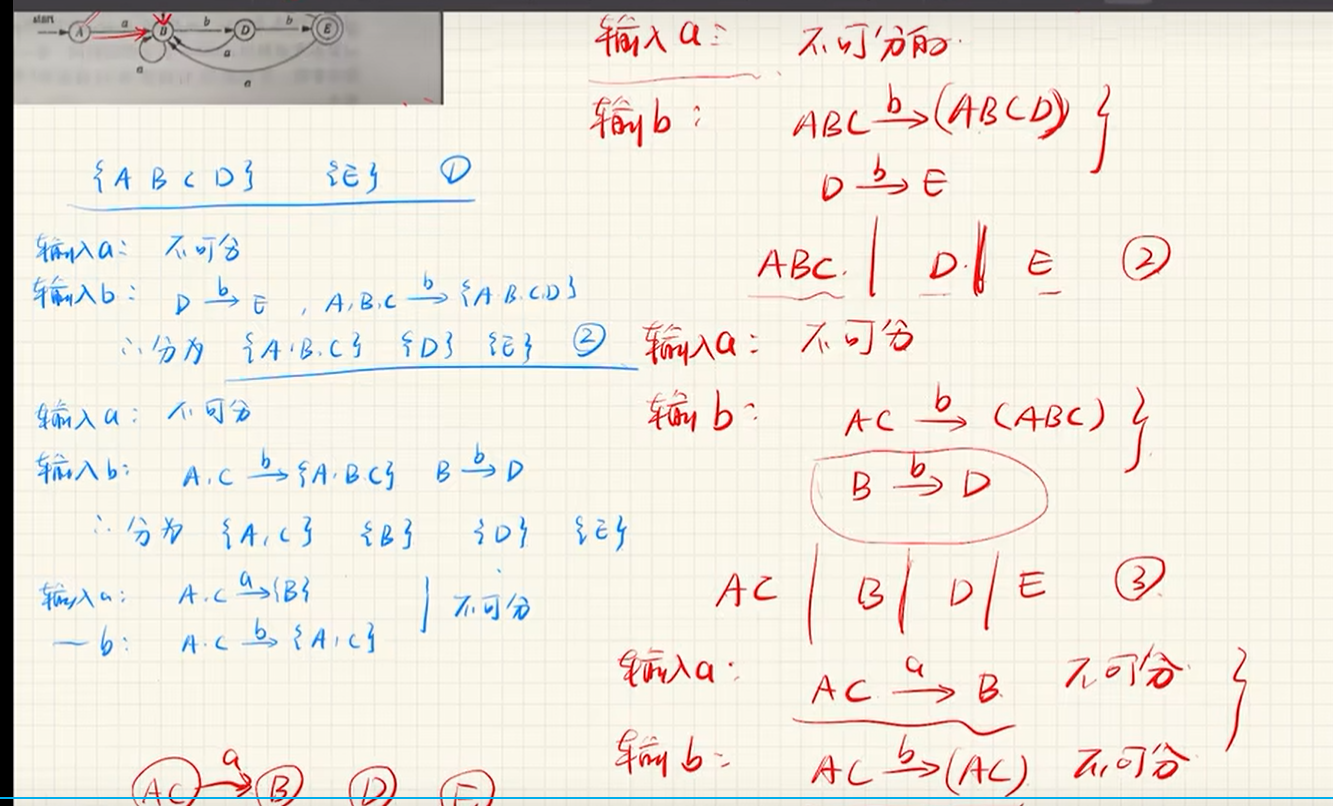 start A a B b D b E
a a
a
{A B C D} {E} ①
输入a: 不可分
输入b: D b→ E , A,B,C b→ {A.B.C.D}
∴分为 {A.B.C} {D} {E} ②
输入a: 不可分
输入b: A.C b→ {A.B.C} B b→ D
∴分为 {A,C} {B} {D} {E}
输入a: A.C a→ {B}
一b: A.C b→ {A,C} 不可分
AC a→ B D E
输入a: 不可分的.
输入b: ABC b→ (ABCD) }
D b→ E
ABC. | D. | E ②
输入a: 不可分
输入b: AC b→ (ABC) }
B b→ D
AC | B | D | E ③
输入a: AC a→ B. 不可分 }
输入b: AC b→ (AC) 不可分